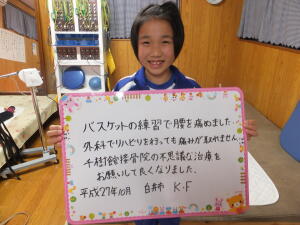 バスケットの練習で腰を痛めました…
外科でリハビリを行っても痛みが取れません…
千樹館接骨院の不思議な治療を
お願いして良くなりました。
平成27年10月 白井市 K.F